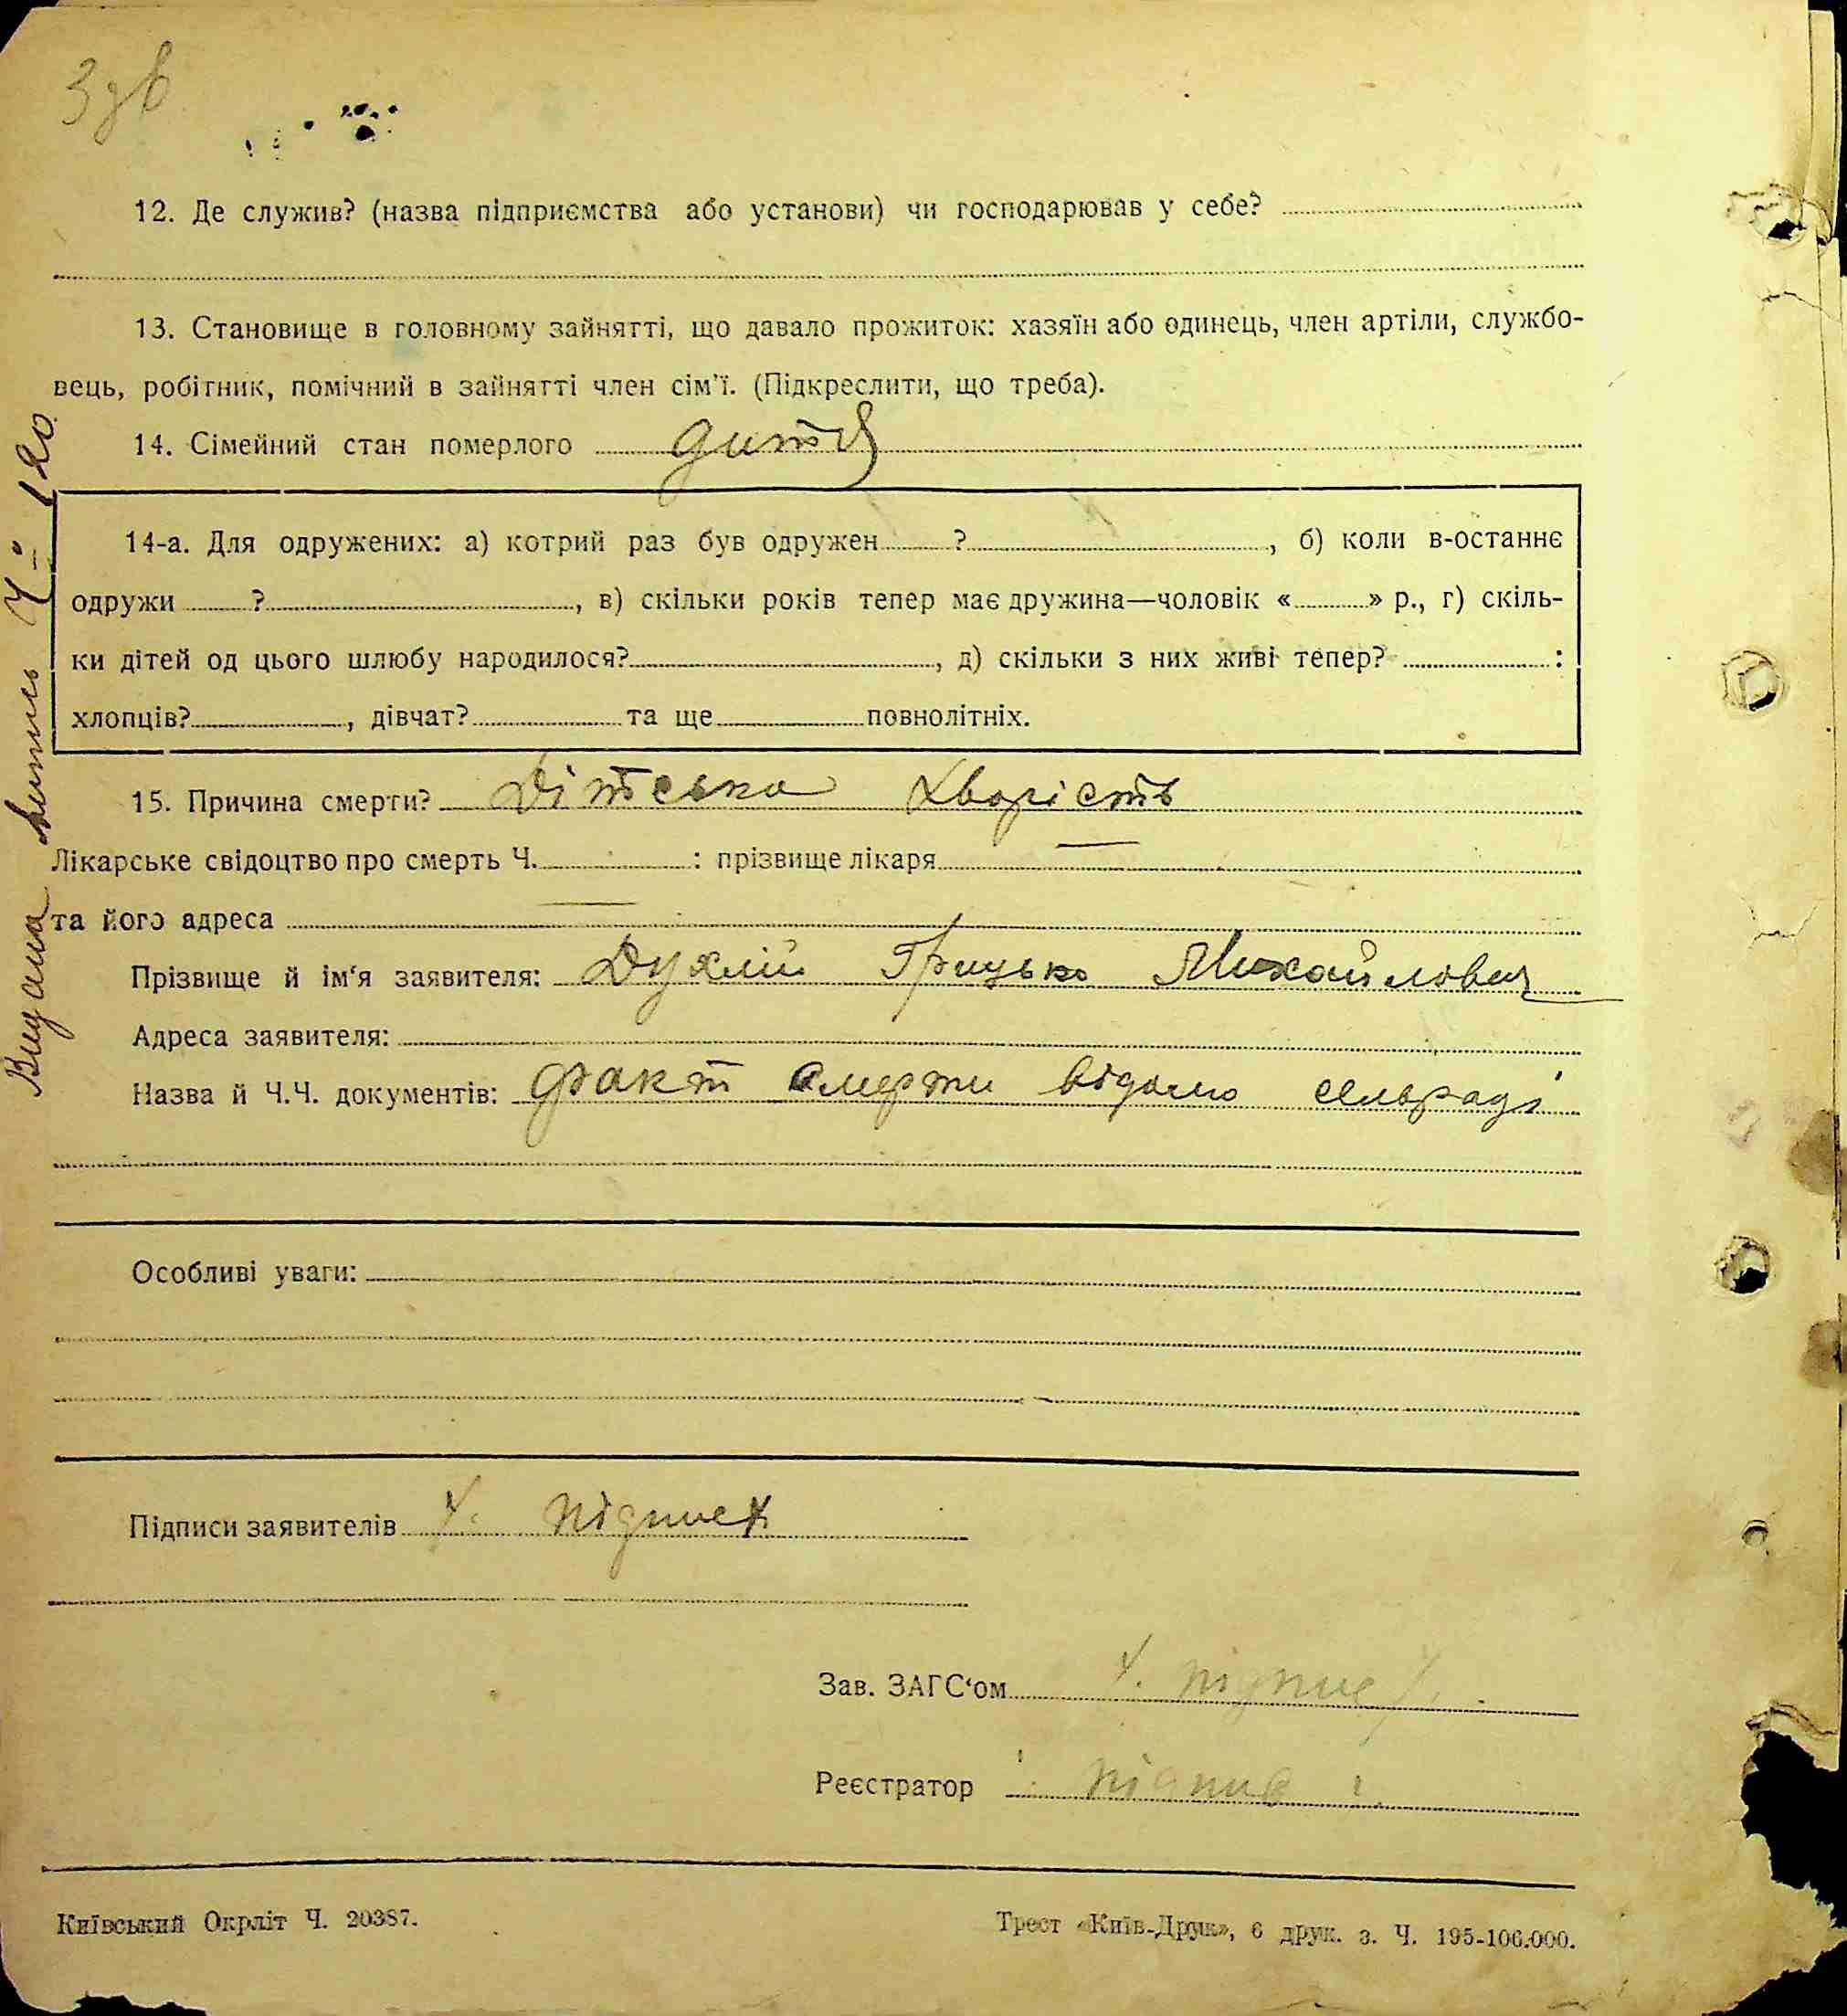 3зв
12. Де служив? (назва підприємства або установи) чи господарював у себе?
13. Становище в головному зайнятті, що давало прожиток: хазяїн або одинець, член артіли, службо-
вець, робітник, помічний в зайнятті член сім'ї. (Підкреслити, що треба).
14. Сімейний стан померлого дитя
14-а. Для одружених: а) котрий раз був одружен ? , б) коли в-останнє
одружи ? , в) скільки років тепер має дружина—чоловік « » р., г) скіль-
ки дітей од цього шлюбу народилося? , д) скільки з них живі тепер? :
хлопців? , дівчат? та ще повнолітніх.
15. Причина смерти? Дітська хворість
Лікарське свідоцтво про смерть Ч. : прізвище лікаря
та його адреса
Прізвище й ім'я заявителя: Духлій Грицько Михайлович
Адреса заявителя:
Назва й Ч.Ч. документів: факт смерти відомо сельраді
Особливі уваги:
Підписи заявителів підпис
Зав. ЗАГС'ом підпис
Реєстратор підпис
Київський Окрліт Ч. 20387.
Трест «Київ-Друк», 6 друк. з. Ч. 195-100.000.
Видана